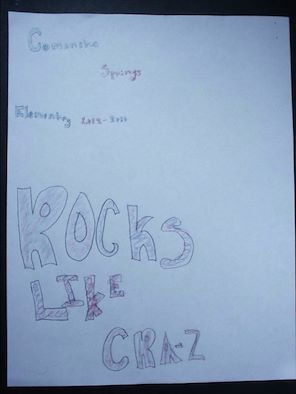 Comanche
Springs
Elementry
ROCKS
LIKE
CRA-Z